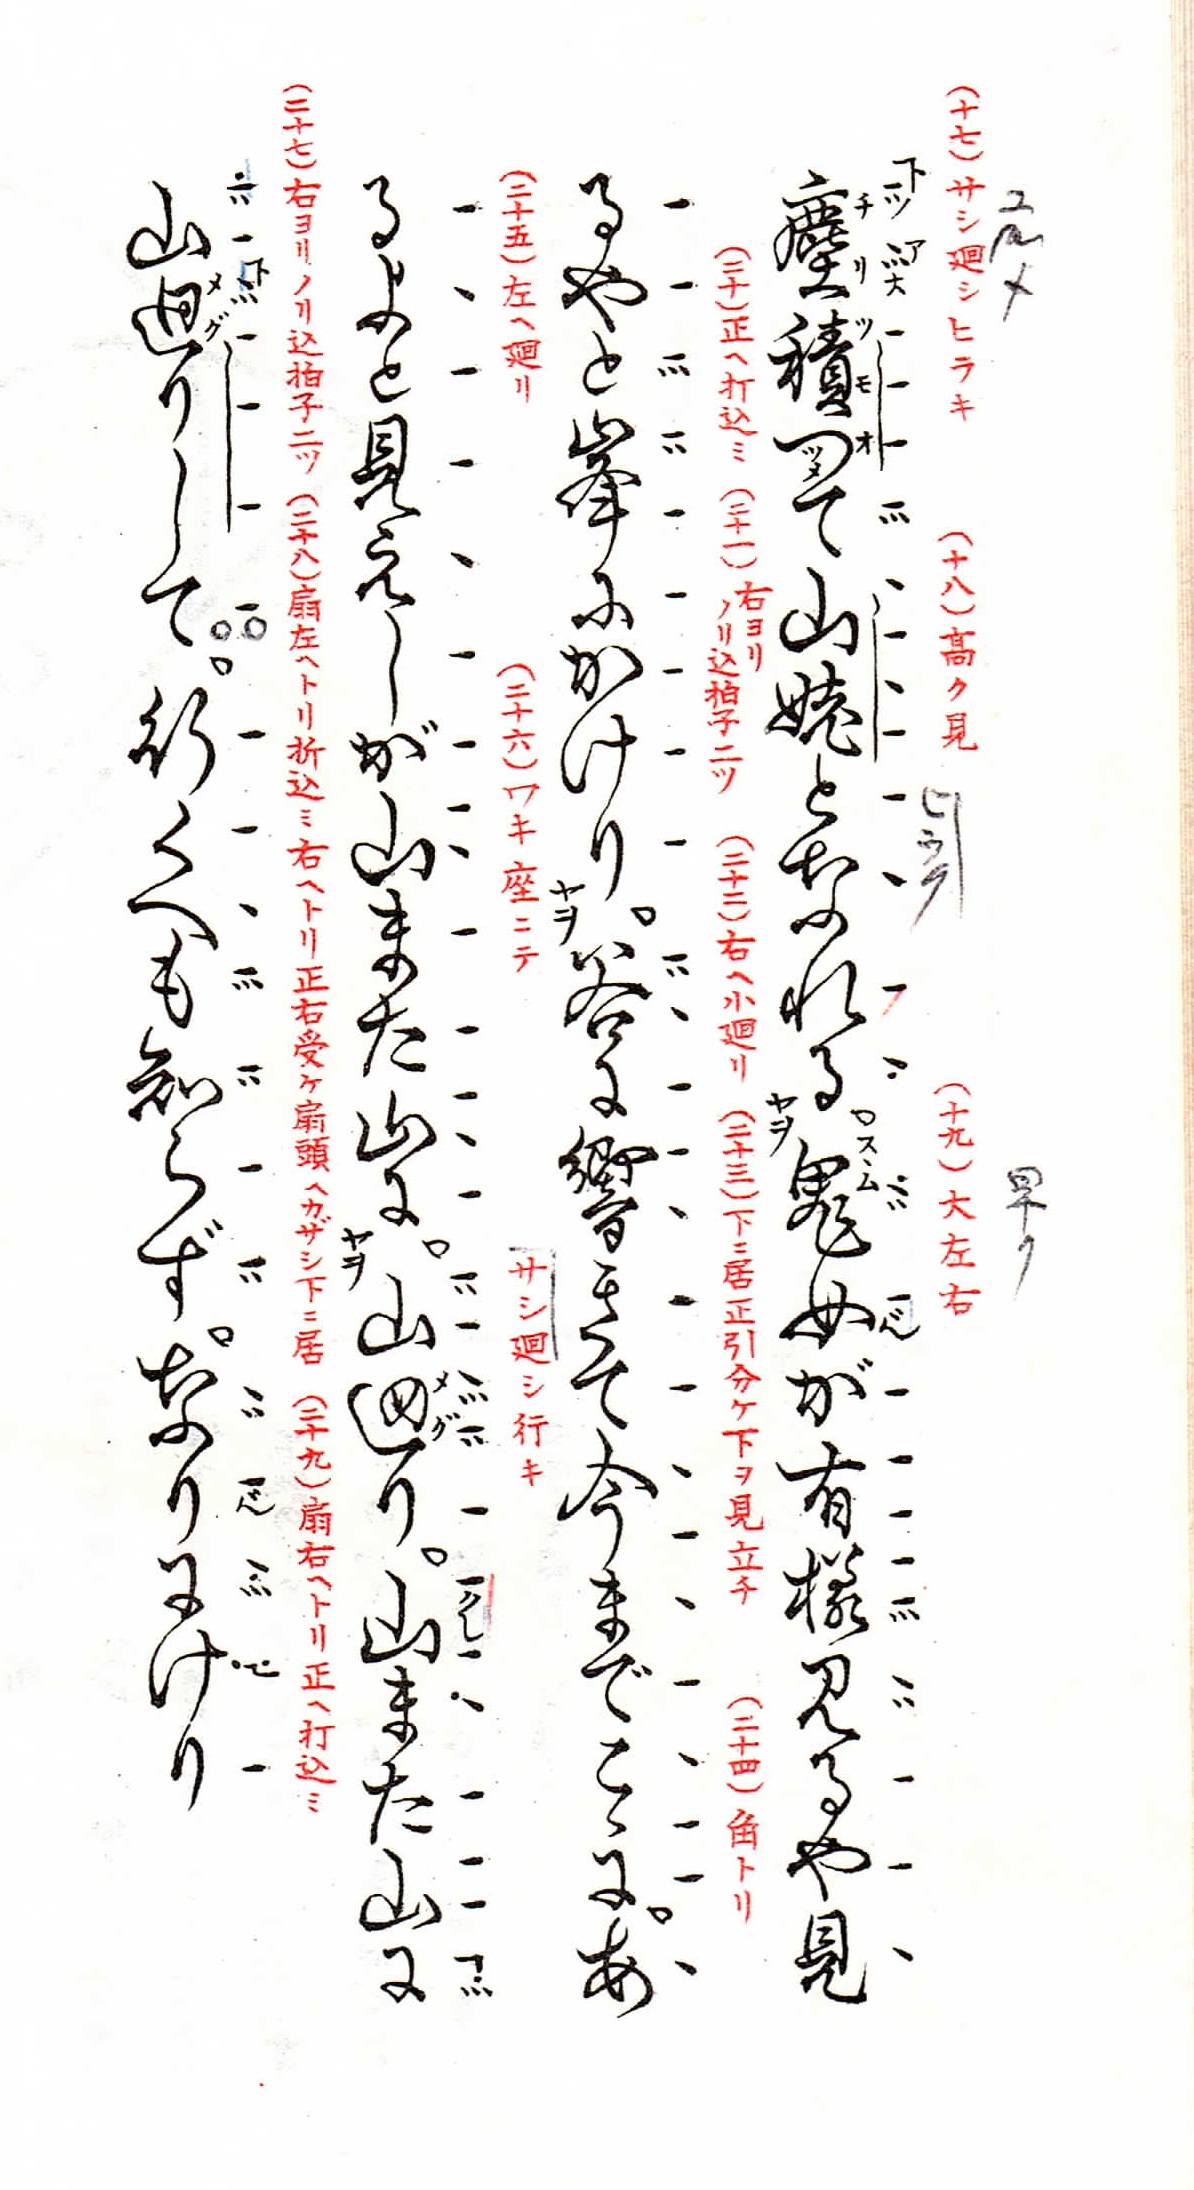 ユルメ
(十七)サシ廻シヒラキ (十八)高ク見 (十九)大左右
早ク
塵積つて山姥となれる。鬼女が有様見るや見
チリツモ
ヤヲ
(二十)正ヘ打込ミ (二十一)右ヨリノリ込拍子二ツ (二十二)右ヘ小廻リ (二十三)下ニ居正引分ケ下ヲ見立チ (二十四)角トリ
るやと峯にかけり。谷に響きて今までこゝに。あ
ヤヲ
(二十五)左ヘ廻リ (二十六)ワキ座ニテ サシ廻シ行キ
るよと見えしが山また山に。山廻り。山また山に
ヤヲ
メグ
(二十七)右ヨリノリ込拍子二ツ (二十八)扇左ヘトリ折込ミ右ヘトリ正右受ケ扇頭ヘカザシ下ニ居 (二十九)扇右ヘトリ正ヘ打込ミ
山廻りして。行くへも知らず。なりにけり
メグ